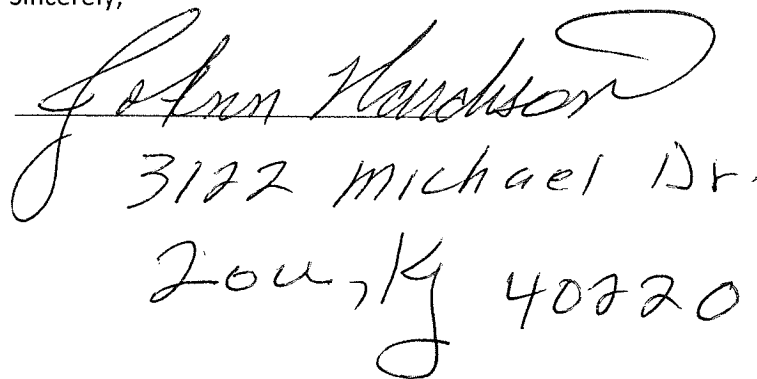 Sincerely,
JoAnn Hardison
3122 Michael Dr.
Lou, Ky 40220